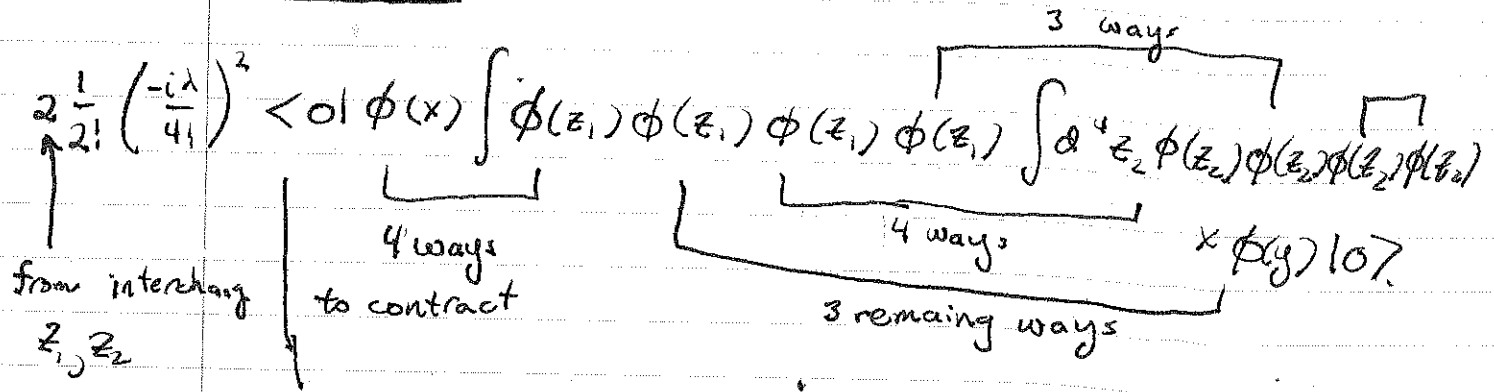 3 ways
2 1/2! (-iλ/4!)² <0| φ(x) ∫ φ(z₁) φ(z₁) φ(z₁) φ(z₁) ∫ d⁴z₂ φ(z₂) φ(z₂) φ(z₂) φ(z₂)
× φ(y) |0>
4 ways
to contract
4 ways
3 remaing ways
from interchang
z₁, z₂